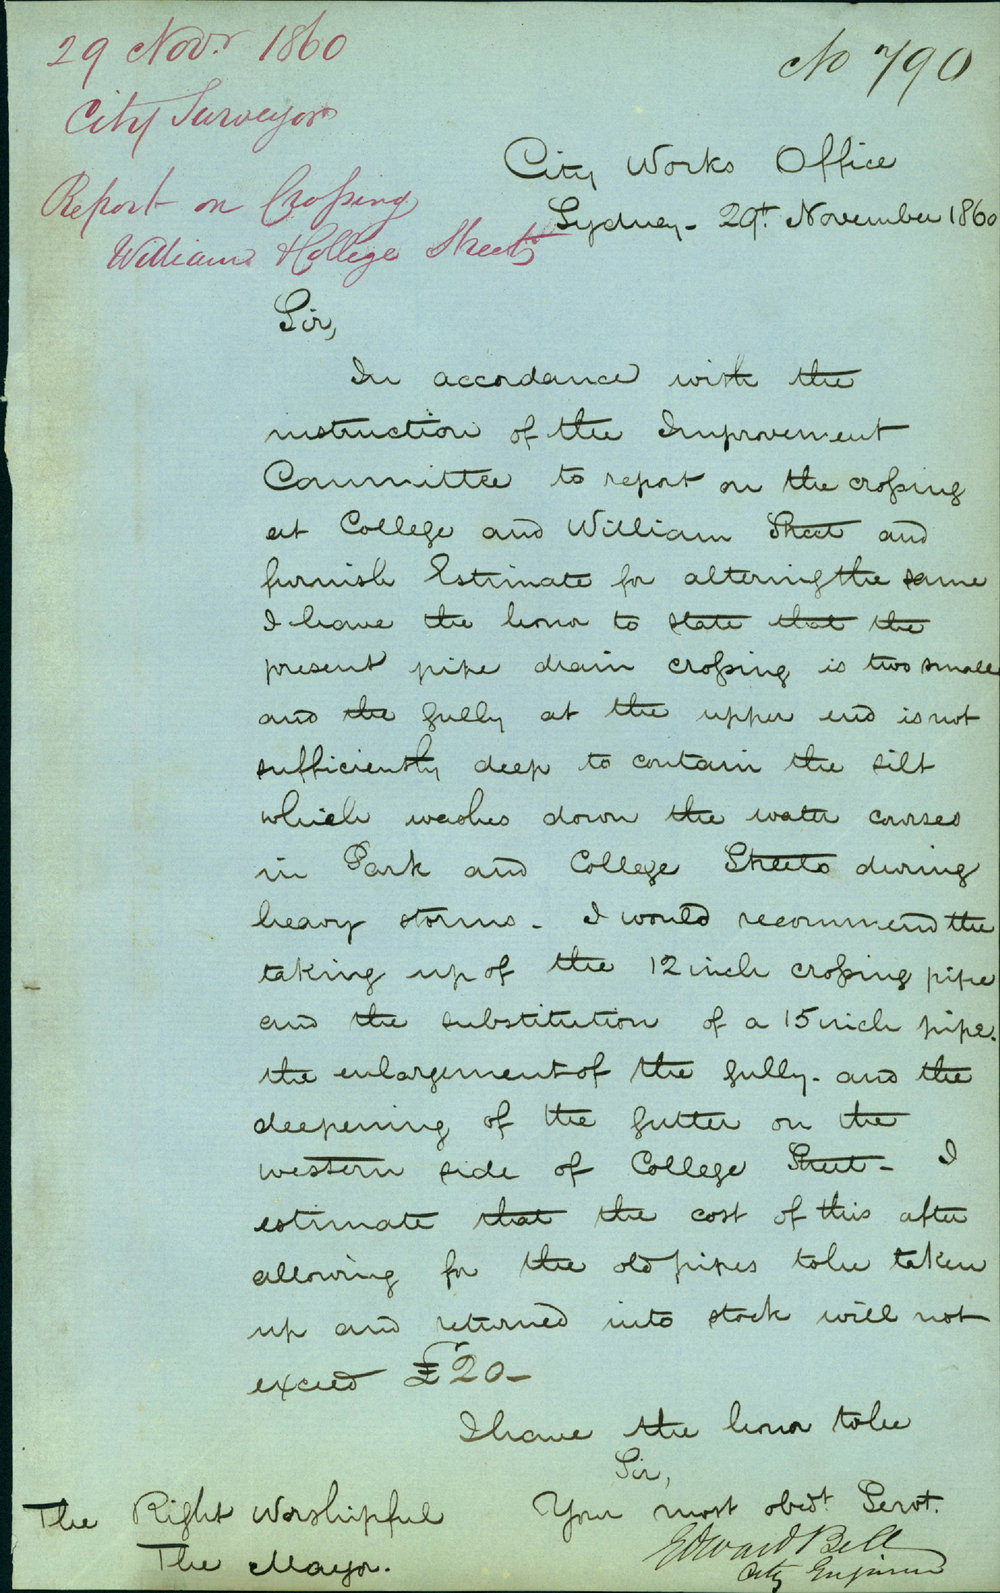 29 Novr 1860
City Surveyor
Report on Crossing
William & College Streets
No 790
City Works Office
Sydney - 29t. November 1860
Sir,
In accordance with the
instruction of the Improvement
Committee to report on the crossing
at College and William Street and
furnish Estimate for altering the same
I have the honor to state that the
present pipe drain crossing is two small
and the gully at the upper end is not
sufficiently deep to contain the silt
which washes down the water courses
in Park and College Streets during
heavy storms - I would recommend the
taking up of the 12 inch crossing pipe
and the substitution of a 15 inch pipe.
the enlargement of the gully - and the
deepening of the gutter on the
western side of College Street - I
estimate that the cost of this after
allowing for the old pipes to be taken
up and returned into stock will not
exceed £20 -
I have the honor to be
Sir,
Your most obedt. Servt.
Edward Bell
City Engineer
The Right Worshipful
The Mayor.